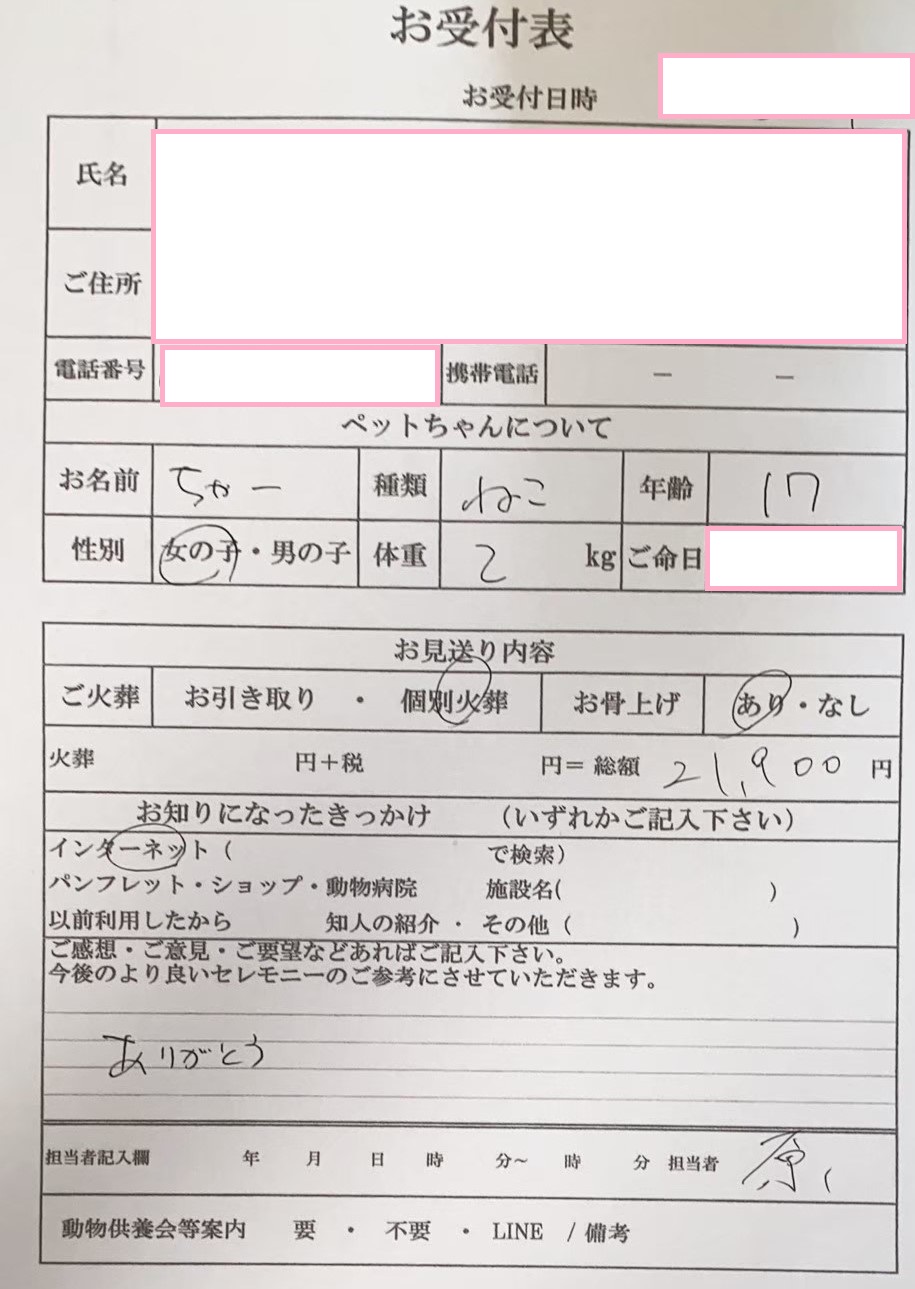 お受付表
お受付日時
氏名
ご住所
電話番号 携帯電話 ー ー
ペットちゃんについて
お名前 ちゃー 種類 ねこ 年齢 17
性別 女の子・男の子 体重 2 kg ご命日
お見送り内容
ご火葬 お引き取り ・ 個別火葬 お骨上げ あり・なし
火葬 円+税 円= 総額 21,900 円
お知りになったきっかけ (いずれかご記入下さい)
インターネット ( で検索)
パンフレット・ショップ・動物病院 施設名( )
以前利用したから 知人の紹介 ・ その他 ( )
ご感想・ご意見・ご要望などあればご記入下さい。
今後のより良いセレモニーのご参考にさせていただきます。
ありがとう
担当者記入欄 年 月 日 時 分~ 時 分 担当者 原
動物供養会等案内 要 ・ 不要 ・ LINE / 備考